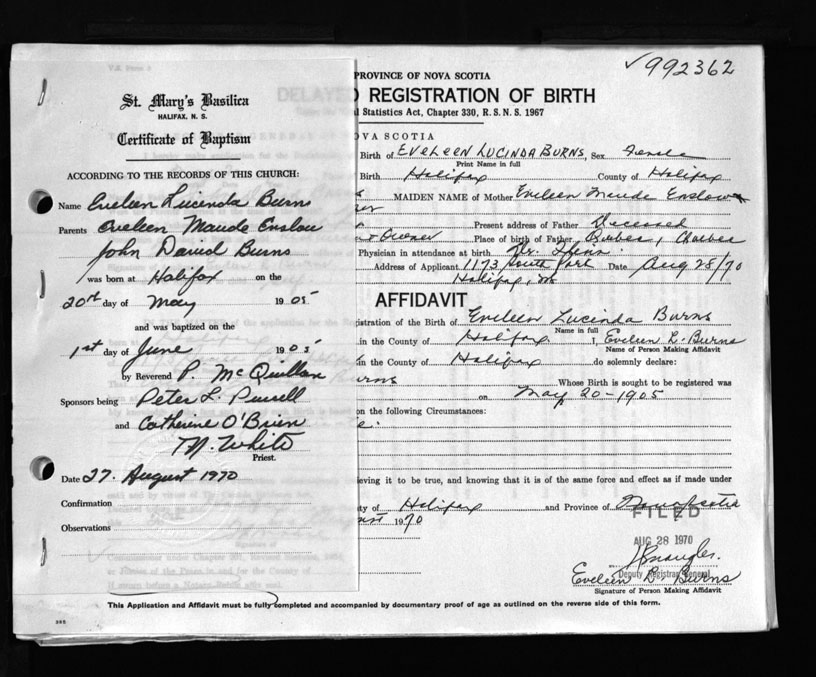 ✓992362
PROVINCE OF NOVA SCOTIA
DELAYED REGISTRATION OF BIRTH
Statistics Act, Chapter 330, R.S.N.S. 1967
NOVA SCOTIA
Birth of EVELEEN LUCINDA BURNS, Sex Female
Print Name in full
Birth Halifax County of Halifax
MAIDEN NAME of Mother Eveleen Maude Enslow
Present address of Father Deceased
Owner Place of birth of Father Quebec, Quebec
Physician in attendance at birth Dr.
Address of Applicant 1173 South Park Date Aug 28/70
Halifax, NS
AFFIDAVIT
istration of the Birth of Eveleen Lucinda Burns
Name in full
in the County of Halifax I, Eveleen L. Burns
Name of Person Making Affidavit
in the County of Halifax do solemnly declare:
Burns Whose Birth is sought to be registered was
on May 20-1905
on the following Circumstances:
eving it to be true, and knowing that it is of the same force and effect as if made under
ty of Halifax and Province of Nova Scotia
ust 1970
FILED
AUG 28 1970
Deputy Registrar General
Eveleen L. Burns
Signature of Person Making Affidavit
This Application and Affidavit must be fully completed and accompanied by documentary proof of age as outlined on the reverse side of this form.
St. Mary's Basilica
HALIFAX, N. S.
Certificate of Baptism
ACCORDING TO THE RECORDS OF THIS CHURCH:
Name Eveleen Lucinda Burns
Parents Eveleen Maude Enslow
John David Burns
was born at Halifax on the
20th day of May 1905
and was baptized on the
1st day of June 1905
by Reverend P. McQuillan
Sponsors being Peter L. Pursell
and Catherine O'Brien
M. White
Priest.
Date 27. August 1970
Confirmation
Observations